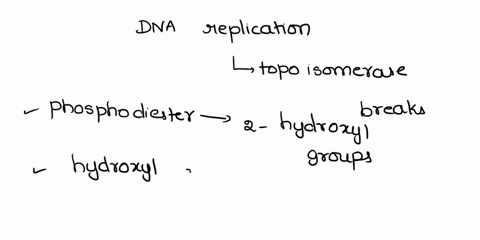 DNA replication
↳ topo isomerase
✓ phosphodiester → 2- hydroxyl breaks
groups
✓ hydroxyl ,